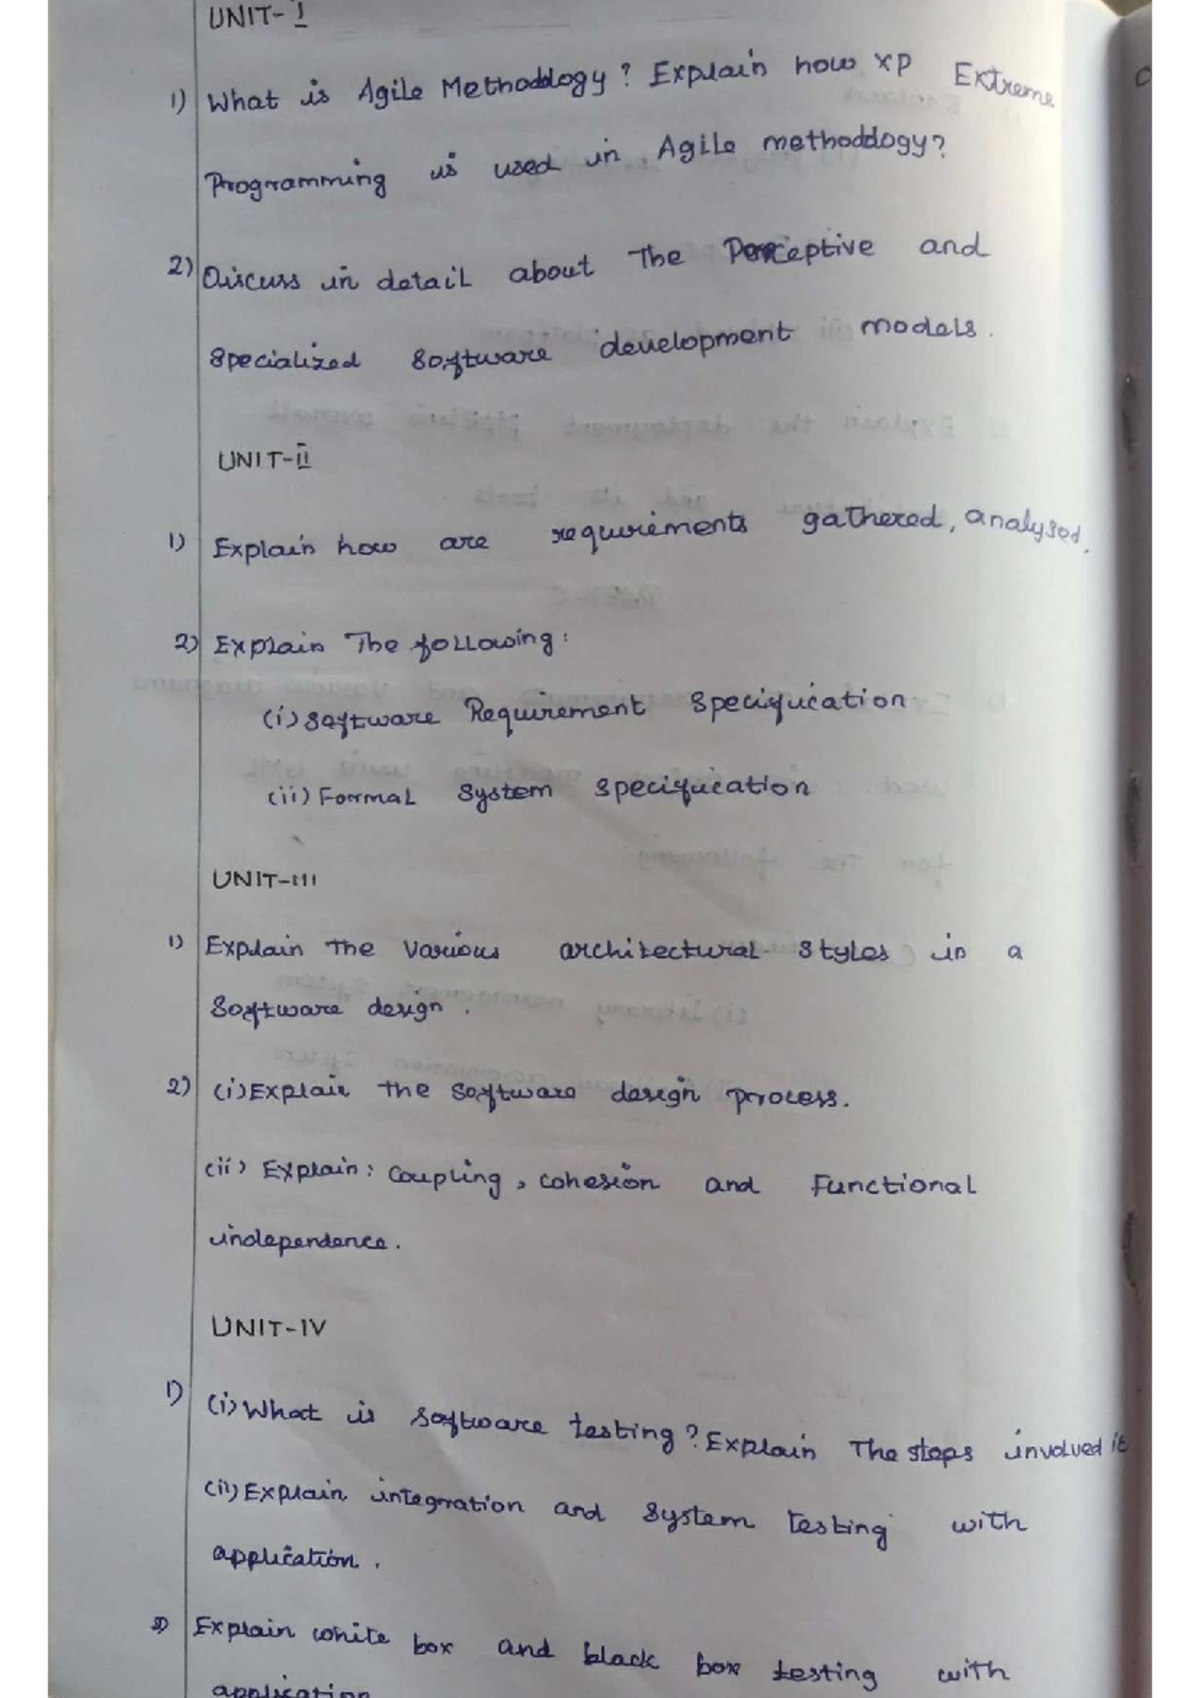 UNIT-I
1) What is Agile Methodology? Explain how XP Extreme
Programming is used in Agile methodology?
2) Discuss in detail about The Perceptive and
Specialized Software development models.
UNIT-II
1) Explain how are requirements gathered, analysed.
2) Explain The following:
(i) Software Requirement Specification
(ii) Formal System Specification
UNIT-III
1) Explain The Various architectural Styles in a
Software design.
2) (i) Explain The Software design process.
(ii) Explain: Coupling, cohesion and Functional
independence.
UNIT-IV
1) (i) What is Software testing? Explain The steps involved it
(ii) Explain integration and System testing with
application.
2) Explain white box and black box testing with
application